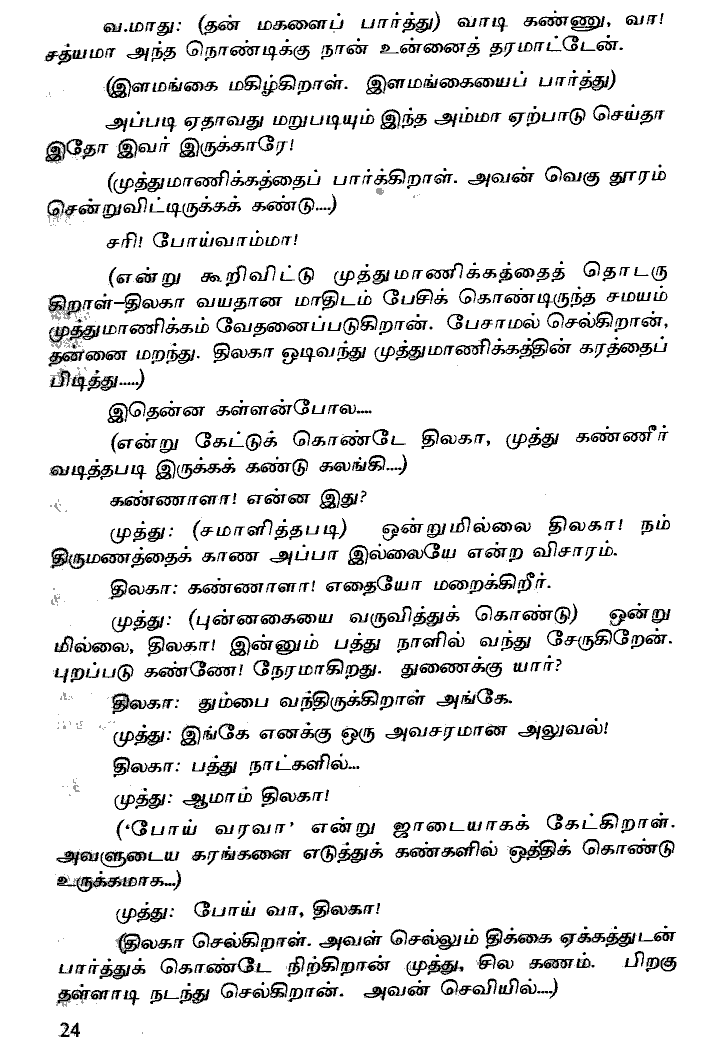 வ.மாது: (தன் மகளைப் பார்த்து) வாடி கண்ணு, வா!
சத்யமா அந்த நொண்டிக்கு நான் உன்னைத் தரமாட்டேன்.
(இளமங்கை மகிழ்கிறாள். இளமங்கையைப் பார்த்து)
அப்படி ஏதாவது மறுபடியும் இந்த அம்மா ஏற்பாடு செய்தா
இதோ இவர் இருக்காரே!
(முத்துமாணிக்கத்தைப் பார்க்கிறாள். அவன் வெகு தூரம்
சென்றுவிட்டிருக்கக் கண்டு....)
சரி! போய்வாம்மா!
(என்று கூறிவிட்டு முத்துமாணிக்கத்தைத் தொடரு
கிறாள்–திலகா வயதான மாதிடம் பேசிக் கொண்டிருந்த சமயம்
முத்துமாணிக்கம் வேதனைப்படுகிறான். பேசாமல் செல்கிறான்,
தன்னை மறந்து. திலகா ஓடிவந்து முத்துமாணிக்கத்தின் கரத்தைப்
பிடித்து.....)
இதென்ன கள்ளன்போல....
(என்று கேட்டுக் கொண்டே திலகா, முத்து கண்ணீர்
வடித்தபடி இருக்கக் கண்டு கலங்கி....)
கண்ணாளா! என்ன இது?
முத்து: (சமாளித்தபடி) ஒன்றுமில்லை திலகா! நம்
திருமணத்தைக் காண அப்பா இல்லையே என்ற விசாரம்.
திலகா: கண்ணாளா! எதையோ மறைக்கிறீர்.
முத்து: (புன்னகையை வருவித்துக் கொண்டு) ஒன்று
மில்லை, திலகா! இன்னும் பத்து நாளில் வந்து சேருகிறேன்.
புறப்படு கண்ணே! நேரமாகிறது. துணைக்கு யார்?
திலகா: தும்பை வந்திருக்கிறாள் அங்கே.
முத்து: இங்கே எனக்கு ஒரு அவசரமான அலுவல்!
திலகா: பத்து நாட்களில்...
முத்து: ஆமாம் திலகா!
('போய் வரவா' என்று ஜாடையாகக் கேட்கிறாள்.
அவளுடைய கரங்களை எடுத்துக் கண்களில் ஒத்திக் கொண்டு
உருக்கமாக...)
முத்து: போய் வா, திலகா!
(திலகா செல்கிறாள். அவள் செல்லும் திக்கை ஏக்கத்துடன்
பார்த்துக் கொண்டே நிற்கிறான் முத்து, சில கணம். பிறகு
தள்ளாடி நடந்து செல்கிறான். அவன் செவியில்....)
24